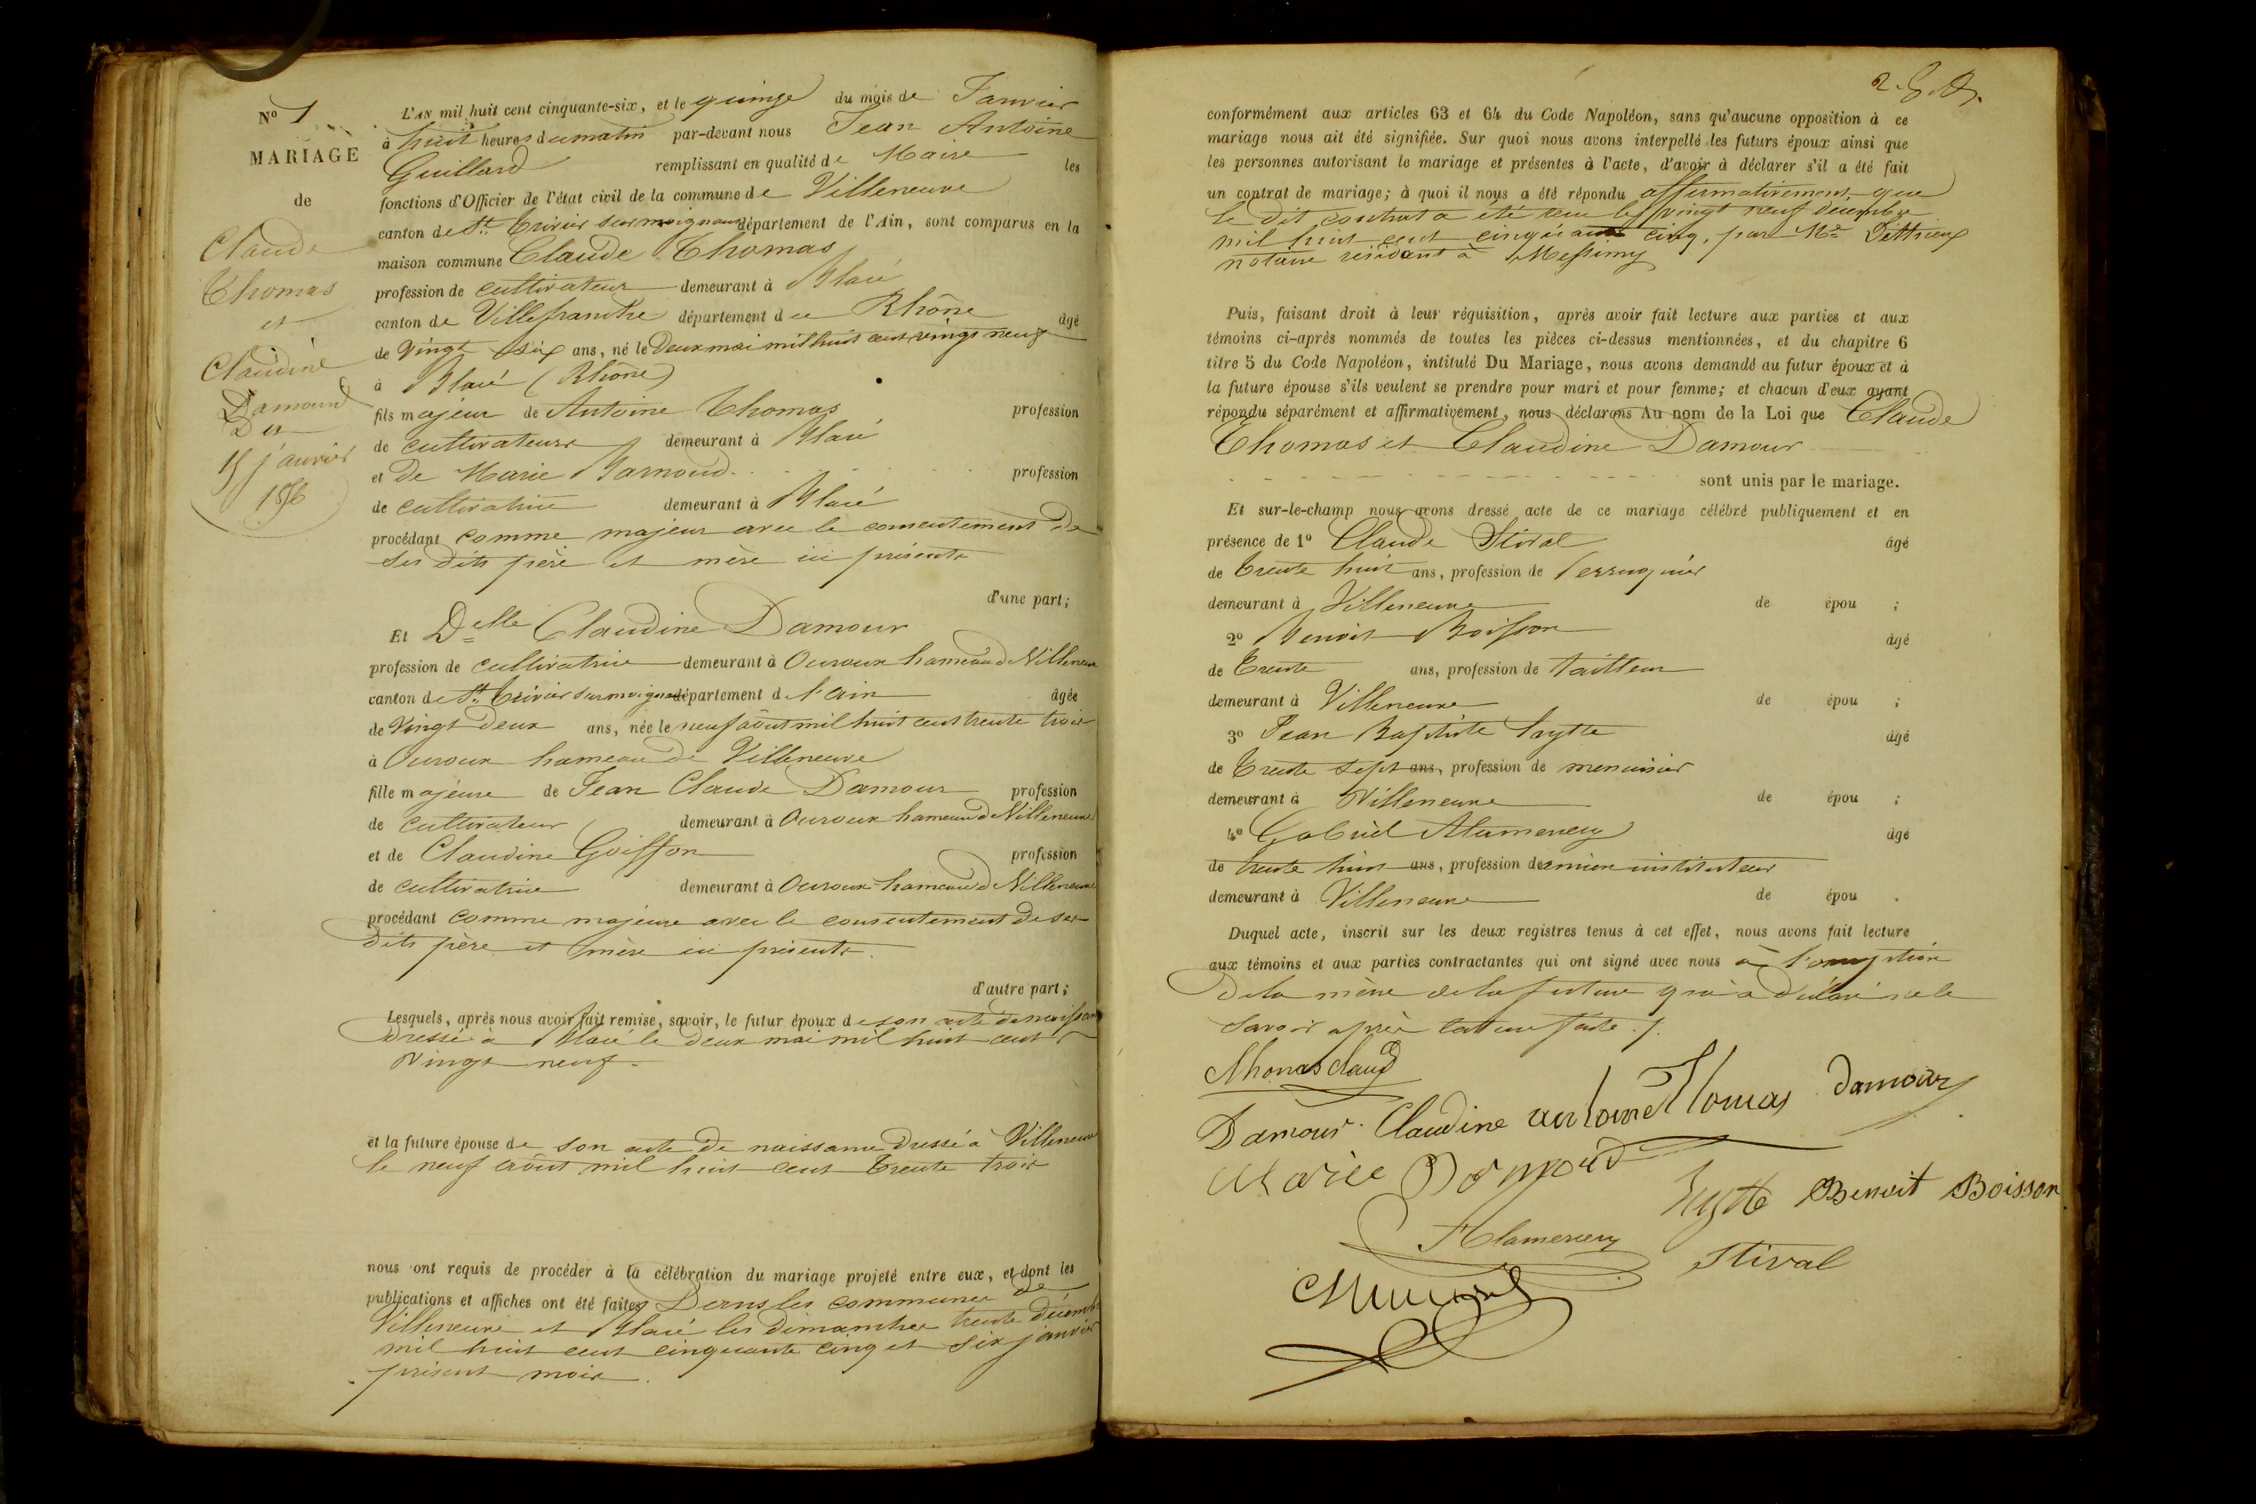 N° 1
MARIAGE
de
Claude
Thomas
et
Claudine
Damour
Du
15 janvier
1856
L'AN mil huit cent cinquante-six, et le quinze du mois de Janvier
à huit heures du matin par-devant nous Jean Antoine
Guillard remplissant en qualité de Maire les
fonctions d'Officier de l'état civil de la commune de Villeneuve
canton de St. Trivier sur moignans département de l'Ain, sont comparus en la
maison commune Claude Thomas
profession de cultivateur demeurant à Blacé
canton de Villefranche département du Rhône âgé
de Vingt six ans, né le Deux mai mil huit cent vingt neuf
à Blacé (Rhône)
fils majeur de Antoine Thomas profession
de cultivateur demeurant à Blacé
et de Marie Barnoud profession
de cultivatrice demeurant à Blacé
procédant comme majeur avec le consentement de
ses dits père et mère ici présents
d'une part;
Et Delle Claudine Damour
profession de cultivatrice demeurant à Ouroux hameau de Villeneuve
canton de St. Trivier sur moignans département de l'ain âgée
de Vingt deux ans, née le neuf août mil huit cent trente trois
à Ouroux hameau de Villeneuve
fille majeure de Jean Claude Damour profession
de cultivateur demeurant à Ouroux hameau de Villeneuve
et de Claudine Goiffon profession
de cultivatrice demeurant à Ouroux hameau de Villeneuve
procédant comme majeure avec le consentement de ses
dits père et mère ici présents.
d'autre part;
Lesquels, après nous avoir fait remise, savoir, le futur époux de son acte de naissance
dressé à Blacé le deux mai mil huit cent
vingt neuf.
et la future épouse de son acte de naissance dressé à Villeneuve
le neuf août mil huit cent trente trois
nous ont requis de procéder à la célébration du mariage projeté entre eux, et dont les
publications et affiches ont été faites Dans les communes de
Villeneuve et Blacé les Dimanches trente décembre
mil huit cent cinquante cinq et six janvier
présent mois.
conformément aux articles 63 et 64 du Code Napoléon, sans qu'aucune opposition à ce
mariage nous ait été signifiée. Sur quoi nous avons interpellé les futurs époux ainsi que
les personnes autorisant le mariage et présentes à l'acte, d'avoir à déclarer s'il a été fait
un contrat de mariage; à quoi il nous a été répondu affirmativement que
le dit contrat a été reçu le vingt neuf décembre
mil huit cent cinquante cinq, par Me
notaire résidant à Messimy
Puis, faisant droit à leur réquisition, après avoir fait lecture aux parties et aux
témoins ci-après nommés de toutes les pièces ci-dessus mentionnées, et du chapitre 6
titre 5 du Code Napoléon, intitulé Du Mariage, nous avons demandé au futur époux et à
la future épouse s'ils veulent se prendre pour mari et pour femme; et chacun d'eux ayant
répondu séparément et affirmativement, nous déclarons Au nom de la Loi que Claude
Thomas et Claudine Damour
sont unis par le mariage.
Et sur-le-champ nous avons dressé acte de ce mariage célébré publiquement et en
présence de 1° Claude Stival âgé
de Trente huit ans, profession de Perruquier
demeurant à Villeneuve de épou ;
2° Benoit Boisson âgé
de Trente ans, profession de tailleur
demeurant à Villeneuve de épou ;
3° Jean Baptiste âgé
de Trente sept ans, profession de menuisier
demeurant à Villeneuve de épou ;
4° Gabriel Alamercery âgé
de trente huit ans, profession d'ancien instituteur
demeurant à Villeneuve de épou .
Duquel acte, inscrit sur les deux registres tenus à cet effet, nous avons fait lecture
aux témoins et aux parties contractantes qui ont signé avec nous à l'exception
De la mère de la future qui a déclaré ne le
savoir après lecture faite ./.
Thomas Claude
Damour Claudine antoine Thomas Damour
Marie Barnoud
Benoit Boisson
Alamercery Stival